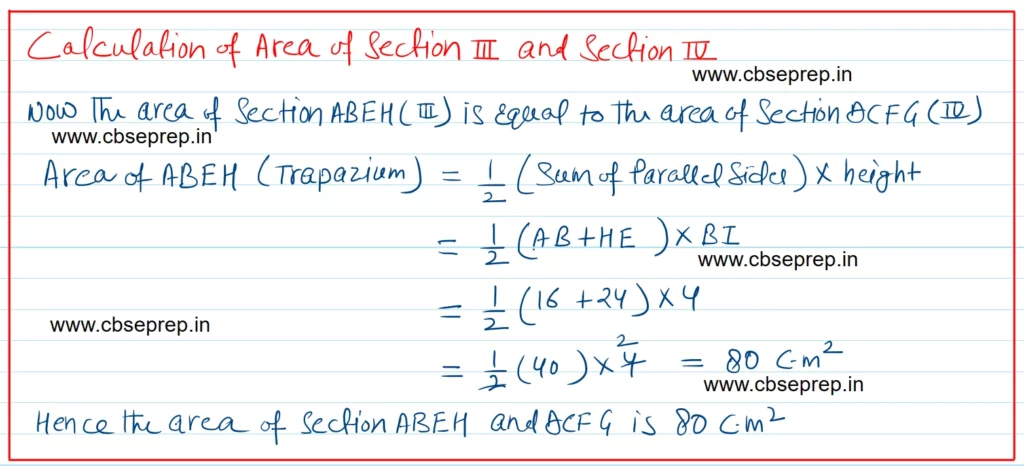 Calculation of Area of Section III and Section IV
www.cbseprep.in
Now The area of Section ABEH (III) is equal to the area of Section DCFG (IV)
www.cbseprep.in
Area of ABEH (Trapazium) = 1/2 (Sum of Parallel Sides) × height
= 1/2 (AB + HE) × BI
www.cbseprep.in
= 1/2 (16 + 24) × 4
www.cbseprep.in
= 1/2 (40) × 4 2 = 80 Cm²
www.cbseprep.in
Hence the area of Section ABEH and DCFG is 80 Cm²